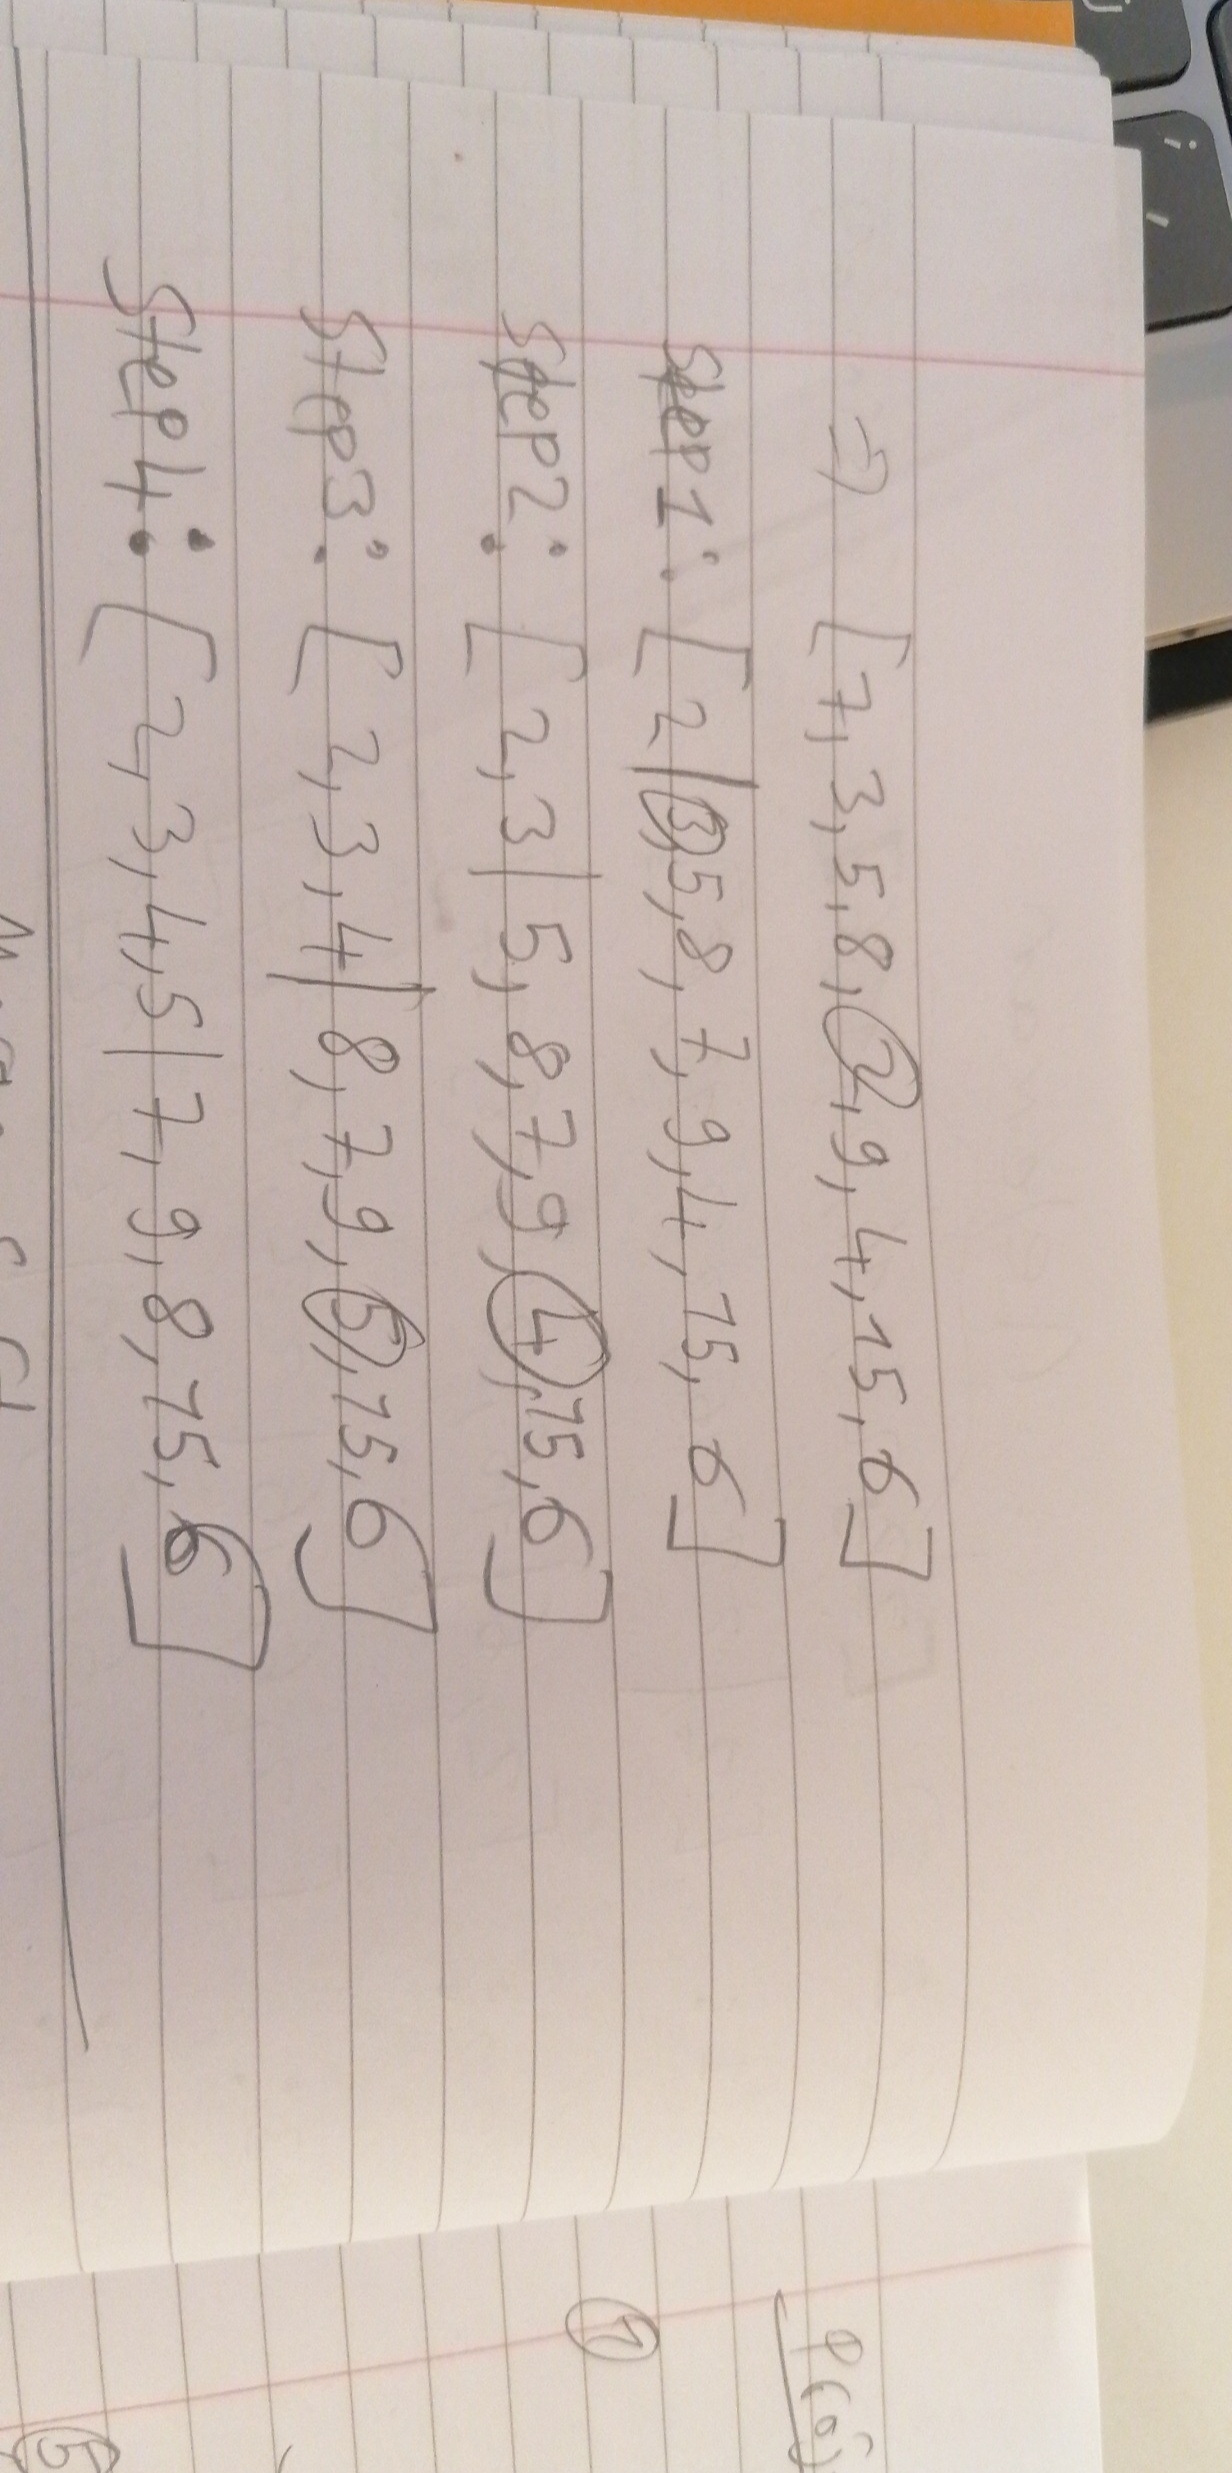 ⇒ [7, 3, 5, 8, 2, 9, 4, 15, 6]
Step1: [2 | 3, 5, 8, 7, 9, 4, 15, 6]
Step2: [2, 3 | 5, 8, 7, 9, 4, 15, 6]
Step3: [2, 3, 4 | 8, 7, 9, 5, 15, 6]
Step4: [2, 3, 4, 5 | 7, 9, 8, 15, 6]
1
5